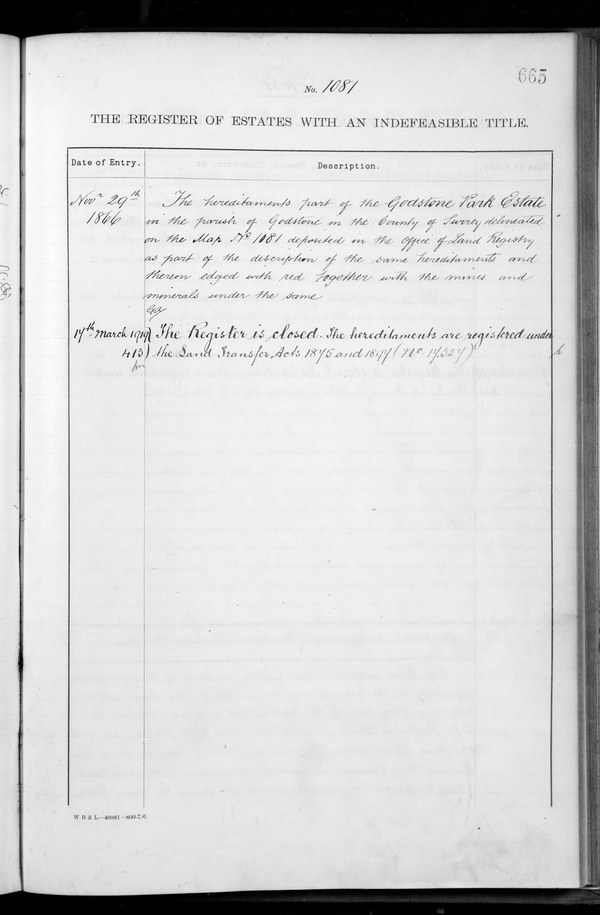 665
No. 1081
THE REGISTER OF ESTATES WITH AN INDEFEASIBLE TITLE.
Date of Entry.
Description.
Novr 29th
1866
The hereditaments part of the Godstone Park Estate
in the parish of Godstone in the County of Surrey delineated
on the Map No 1081 deposited in the Office of Land Registry
as part of the description of the same hereditaments and
thereon edged with red together with the mines and
minerals under the same
17th March 1919
The Register is closed. The hereditaments are registered under
413)
the Land Transfer Acts 1875 and 1897 (No. 17327)
W B & L—48881—800-7-6